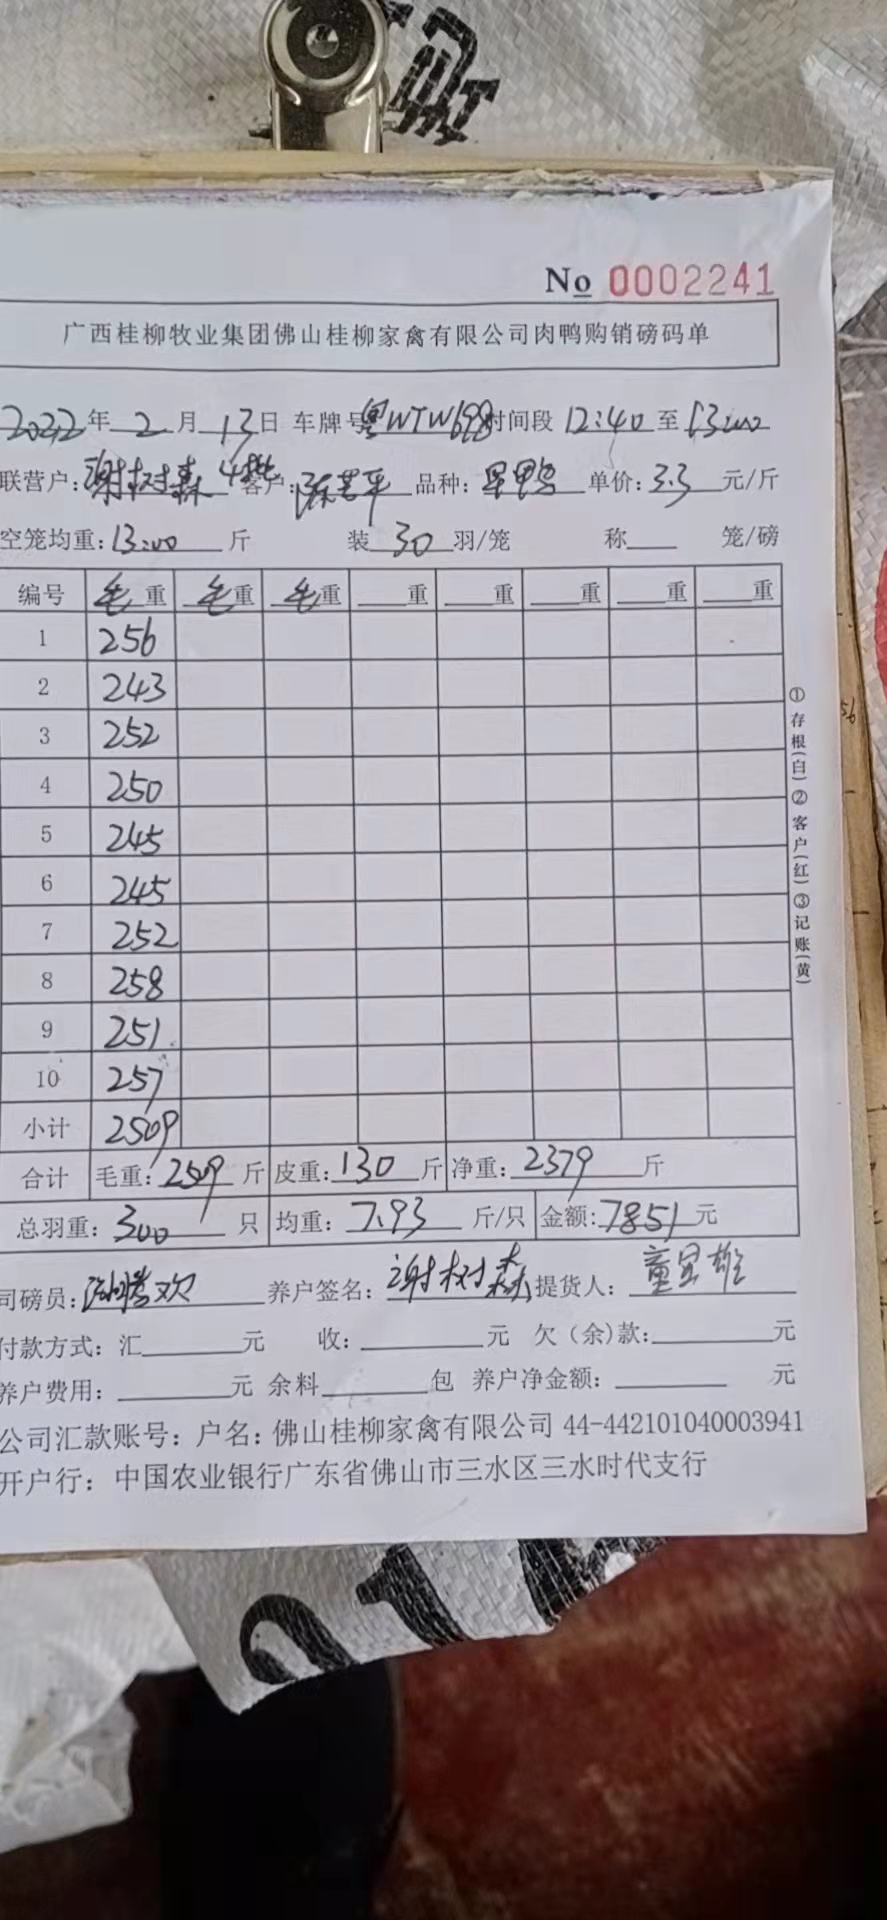 No 0002241
广西桂柳牧业集团佛山桂柳家禽有限公司肉鸭购销磅码单
2022年 2 月 13 日 车牌号 粤WTW698 时间段 12:40 至 13:00
联营户: 谢树森 4批 客户: 平 品种: 旱鸭 单价: 3.3 元/斤
空笼均重: 13.00 斤 装 30 羽/笼 称 笼/磅
编号 毛重 毛重 毛重 重 重 重 重 重
1 256
2 243
3 252
4 250
5 245
6 245
7 252
8 258
9 251
10 257
小计 2509
合计 毛重: 2509 斤 皮重: 130 斤 净重: 2379 斤
总羽重: 300 只 均重: 7.93 斤/只 金额: 7851 元
司磅员: 欢 养户签名: 谢树森 提货人: 童 雄
付款方式: 汇 元 收: 元 欠(余)款: 元
养户费用: 元 余料 包 养户净金额: 元
公司汇款账号: 户名: 佛山桂柳家禽有限公司 44-442101040003941
开户行: 中国农业银行广东省佛山市三水区三水时代支行
①存根(白)②客户(红)③记账(黄)
56